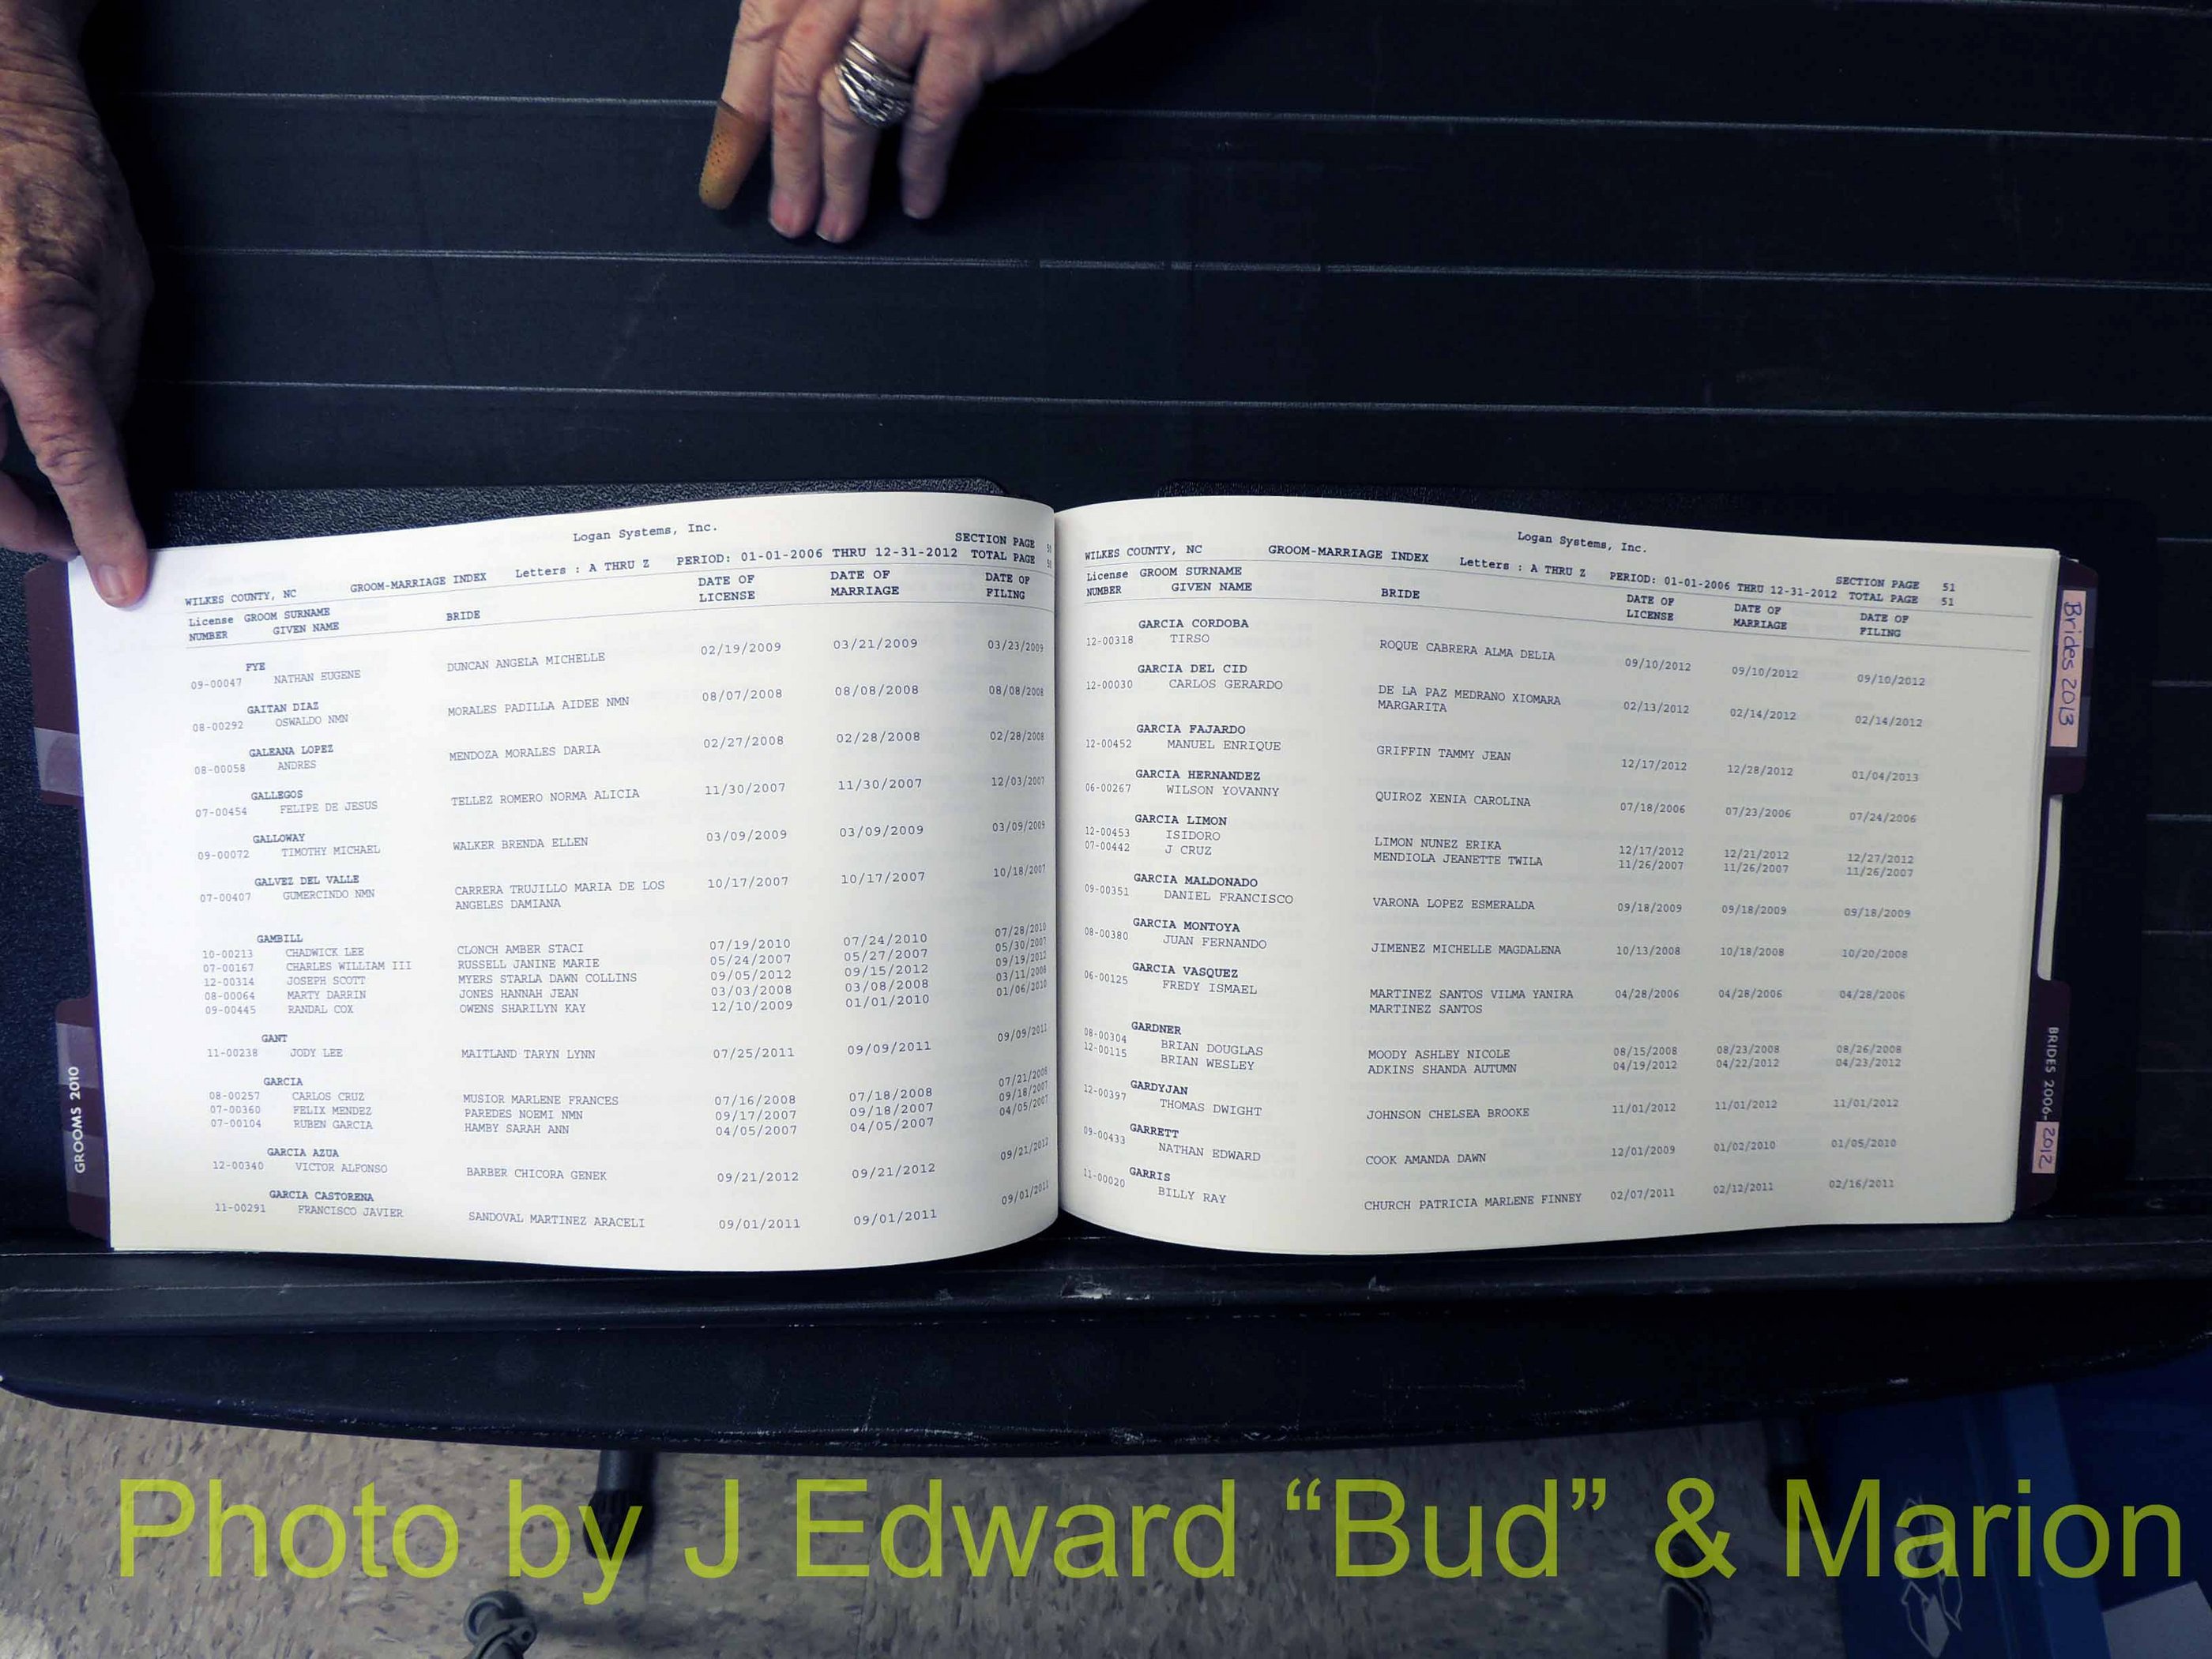 Logan Systems, Inc.
SECTION PAGE 50
WILKES COUNTY, NC GROOM-MARRIAGE INDEX Letters : A THRU Z PERIOD: 01-01-2006 THRU 12-31-2012 TOTAL PAGE 50
License GROOM SURNAME DATE OF DATE OF DATE OF
NUMBER GIVEN NAME BRIDE LICENSE MARRIAGE FILING
FYE
09-00047 NATHAN EUGENE DUNCAN ANGELA MICHELLE 02/19/2009 03/21/2009 03/23/2009
GAITAN DIAZ
08-00292 OSWALDO NMN MORALES PADILLA AIDEE NMN 08/07/2008 08/08/2008 08/08/2008
GALEANA LOPEZ
08-00058 ANDRES MENDOZA MORALES DARIA 02/27/2008 02/28/2008 02/28/2008
GALLEGOS
07-00454 FELIPE DE JESUS TELLEZ ROMERO NORMA ALICIA 11/30/2007 11/30/2007 12/03/2007
GALLOWAY
09-00072 TIMOTHY MICHAEL WALKER BRENDA ELLEN 03/09/2009 03/09/2009 03/09/2009
GALVEZ DEL VALLE
07-00407 GUMERCINDO NMN CARRERA TRUJILLO MARIA DE LOS 10/17/2007 10/17/2007 10/18/2007
ANGELES DAMIANA
GAMBILL
10-00213 CHADWICK LEE CLONCH AMBER STACI 07/19/2010 07/24/2010 07/28/2010
07-00167 CHARLES WILLIAM III RUSSELL JANINE MARIE 05/24/2007 05/27/2007 05/30/2007
12-00314 JOSEPH SCOTT MYERS STARLA DAWN COLLINS 09/05/2012 09/15/2012 09/19/2012
08-00064 MARTY DARRIN JONES HANNAH JEAN 03/03/2008 03/08/2008 03/11/2008
09-00445 RANDAL COX OWENS SHARILYN KAY 12/10/2009 01/01/2010 01/06/2010
GANT
11-00238 JODY LEE MAITLAND TARYN LYNN 07/25/2011 09/09/2011 09/09/2011
GARCIA
08-00257 CARLOS CRUZ MUSIOR MARLENE FRANCES 07/16/2008 07/18/2008 07/21/2008
07-00360 FELIX MENDEZ PAREDES NOEMI NMN 09/17/2007 09/18/2007 09/18/2007
07-00104 RUBEN GARCIA HAMBY SARAH ANN 04/05/2007 04/05/2007 04/05/2007
GARCIA AZUA
12-00340 VICTOR ALFONSO BARBER CHICORA GENEK 09/21/2012 09/21/2012 09/21/2012
GARCIA CASTORENA
11-00291 FRANCISCO JAVIER SANDOVAL MARTINEZ ARACELI 09/01/2011 09/01/2011 09/01/2011
GROOMS 2010
Logan Systems, Inc.
SECTION PAGE 51
WILKES COUNTY, NC GROOM-MARRIAGE INDEX Letters : A THRU Z PERIOD: 01-01-2006 THRU 12-31-2012 TOTAL PAGE 51
License GROOM SURNAME DATE OF DATE OF DATE OF
NUMBER GIVEN NAME BRIDE LICENSE MARRIAGE FILING
GARCIA CORDOBA
12-00318 TIRSO ROQUE CABRERA ALMA DELIA 09/10/2012 09/10/2012 09/10/2012
GARCIA DEL CID
12-00030 CARLOS GERARDO DE LA PAZ MEDRANO XIOMARA 02/13/2012 02/14/2012 02/14/2012
MARGARITA
GARCIA FAJARDO
12-00452 MANUEL ENRIQUE GRIFFIN TAMMY JEAN 12/17/2012 12/28/2012 01/04/2013
GARCIA HERNANDEZ
06-00267 WILSON YOVANNY QUIROZ XENIA CAROLINA 07/18/2006 07/23/2006 07/24/2006
GARCIA LIMON
12-00453 ISIDORO LIMON NUNEZ ERIKA 12/17/2012 12/21/2012 12/27/2012
07-00442 J CRUZ MENDIOLA JEANETTE TWILA 11/26/2007 11/26/2007 11/26/2007
GARCIA MALDONADO
09-00351 DANIEL FRANCISCO VARONA LOPEZ ESMERALDA 09/18/2009 09/18/2009 09/18/2009
GARCIA MONTOYA
08-00380 JUAN FERNANDO JIMENEZ MICHELLE MAGDALENA 10/13/2008 10/18/2008 10/20/2008
GARCIA VASQUEZ
06-00125 FREDY ISMAEL MARTINEZ SANTOS VILMA YANIRA 04/28/2006 04/28/2006 04/28/2006
MARTINEZ SANTOS
GARDNER
08-00304 BRIAN DOUGLAS MOODY ASHLEY NICOLE 08/15/2008 08/23/2008 08/26/2008
12-00115 BRIAN WESLEY ADKINS SHANDA AUTUMN 04/19/2012 04/22/2012 04/23/2012
GARDYJAN
12-00397 THOMAS DWIGHT JOHNSON CHELSEA BROOKE 11/01/2012 11/01/2012 11/01/2012
GARRETT
09-00433 NATHAN EDWARD COOK AMANDA DAWN 12/01/2009 01/02/2010 01/05/2010
GARRIS
11-00020 BILLY RAY CHURCH PATRICIA MARLENE FINNEY 02/07/2011 02/12/2011 02/16/2011
Brides 2013
BRIDES 2006-2012
Photo by J Edward “Bud” & Marion